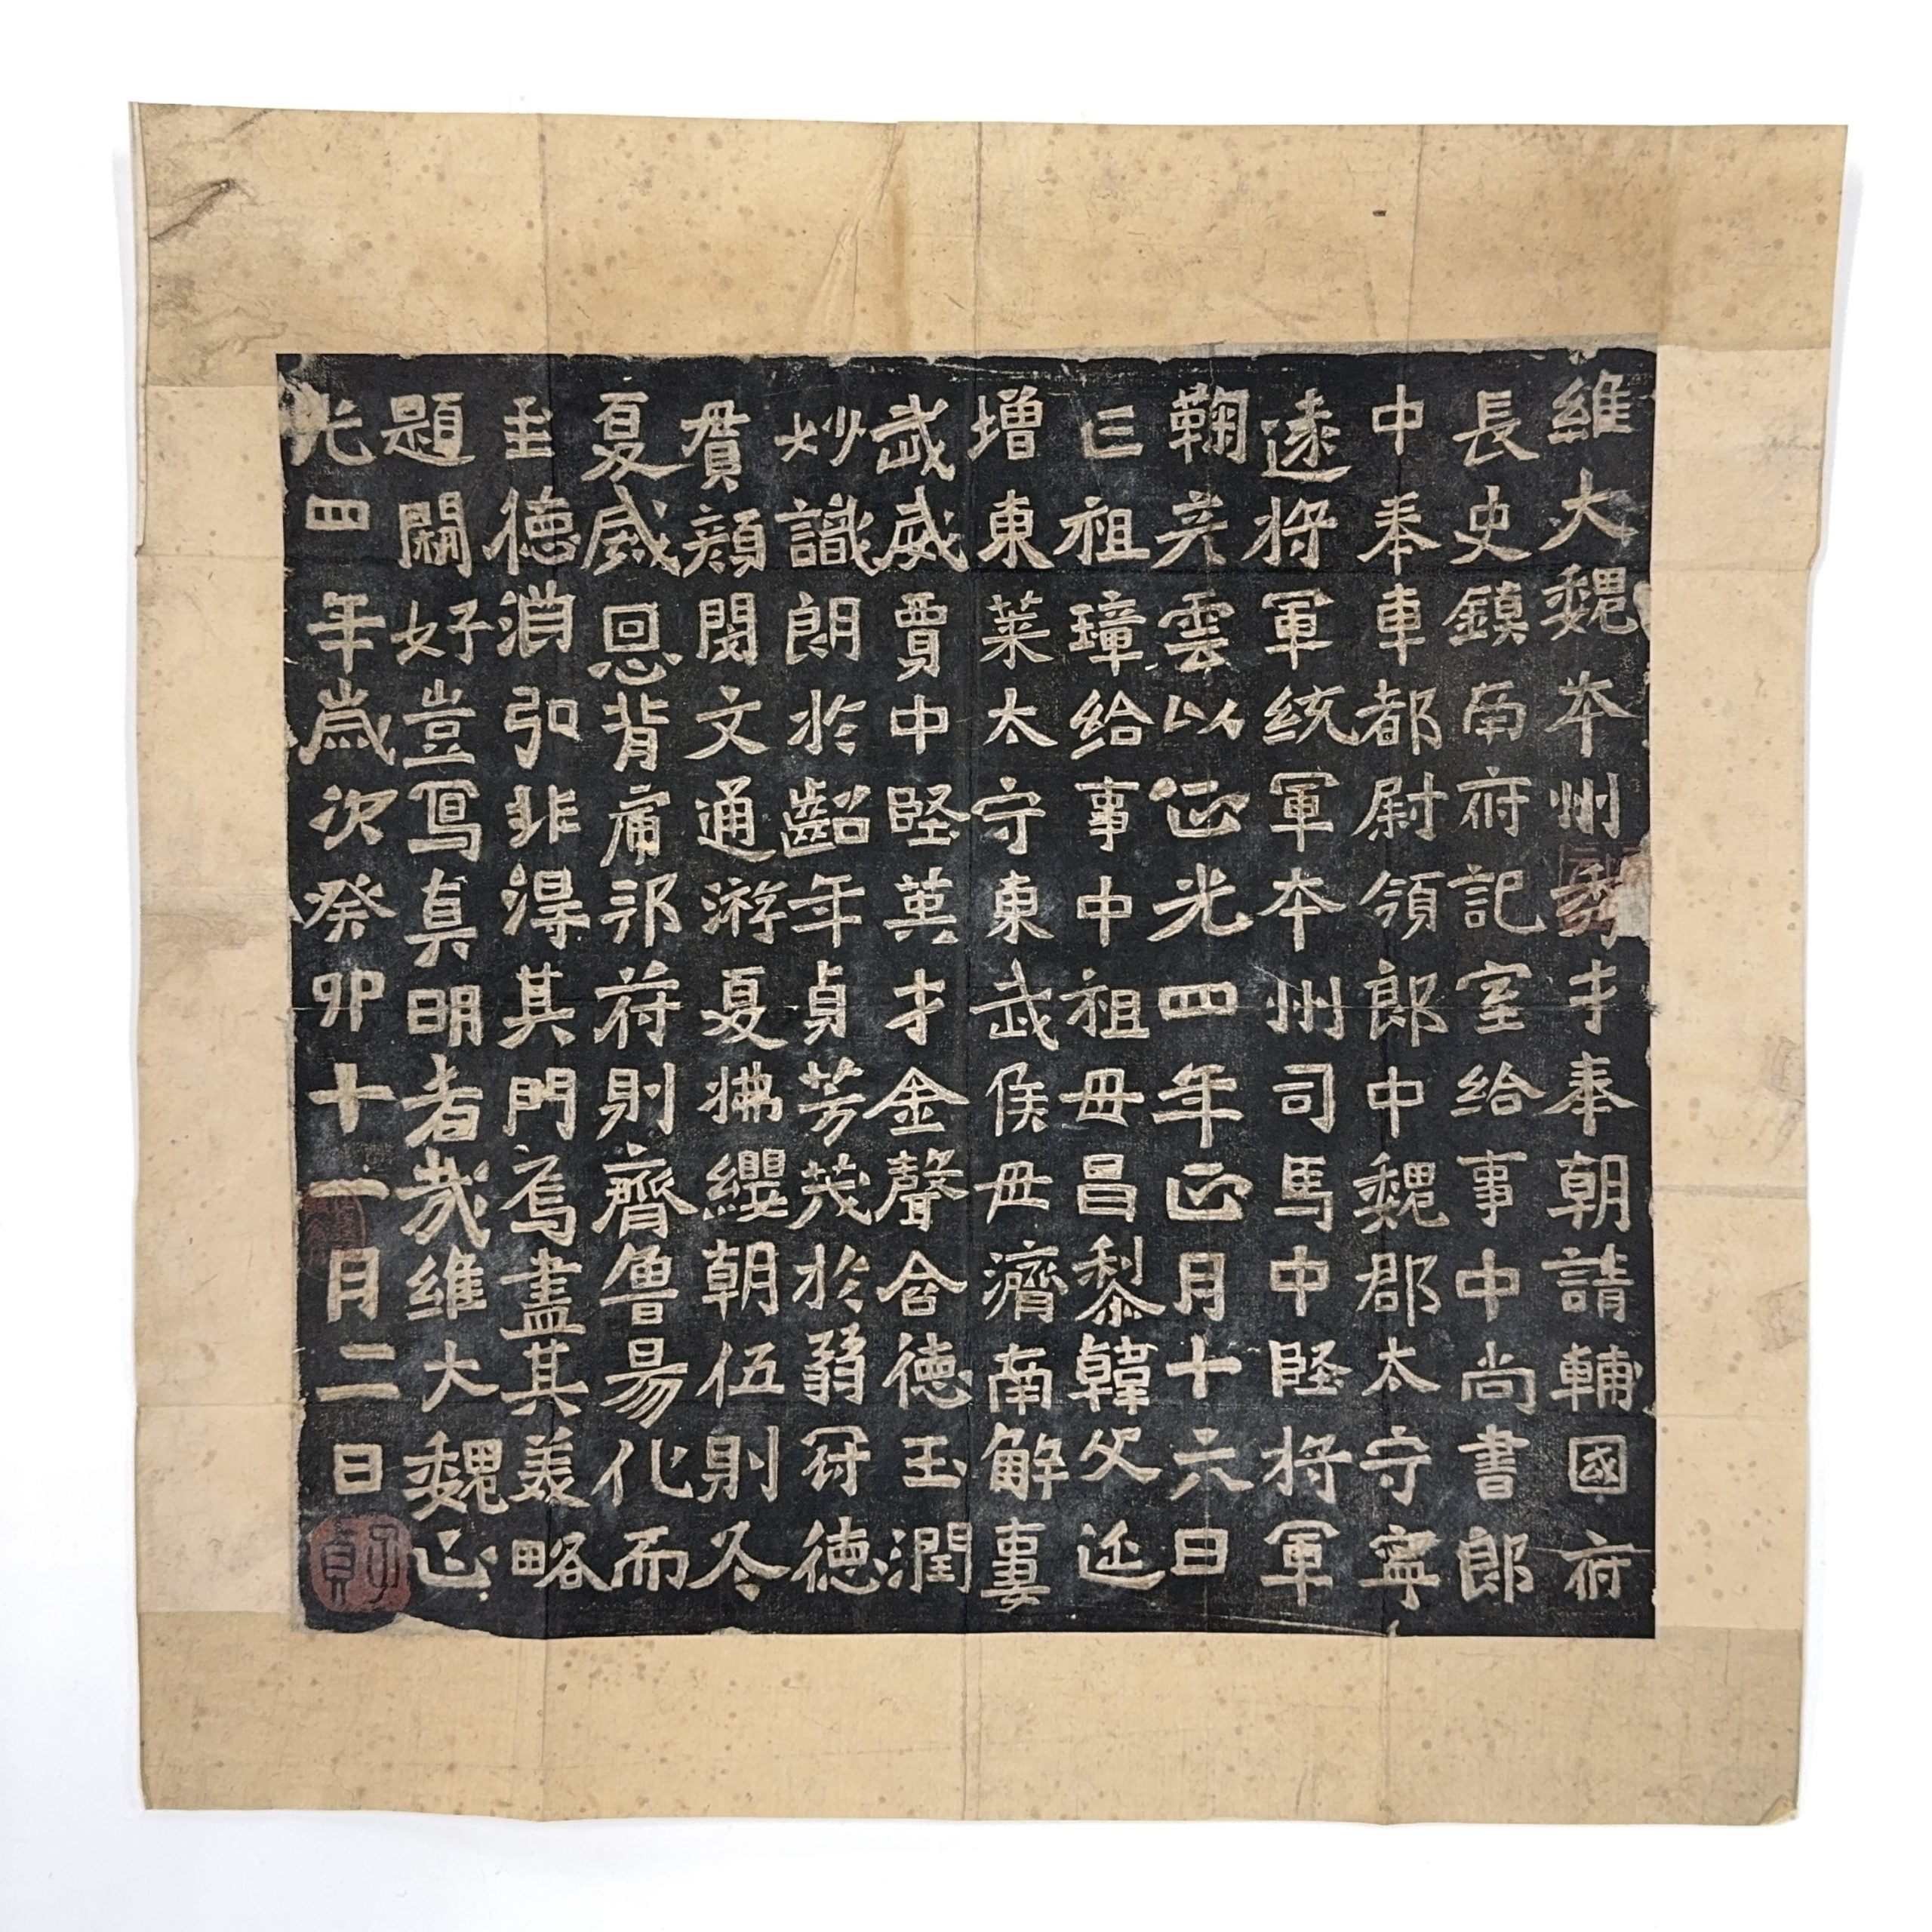 維大魏夲州秀才奉朝請輔國府
長史鎮南府記室給事中尚書郎
中奉車都尉領郎中魏郡太守寧
遠將軍統軍夲州司馬中堅將軍
鞠彥雲以正光四年正月十六日
亡祖璋給事中祖母昌黎韓父延
增東萊太守東武侯母濟南解妻
武威賈中堅英才金聲含德玉潤
妙識朗於齠年貞芳茂於弱冠德
貫顏閔文通游夏拂纓朝伍則冬
夏威恩背庸邦苻則齊魯易化而
至德消弘非淂其門焉盡其美略
題開好豈寫真明者哉維大魏正
光四年歲次癸卯十一月二日
子貞